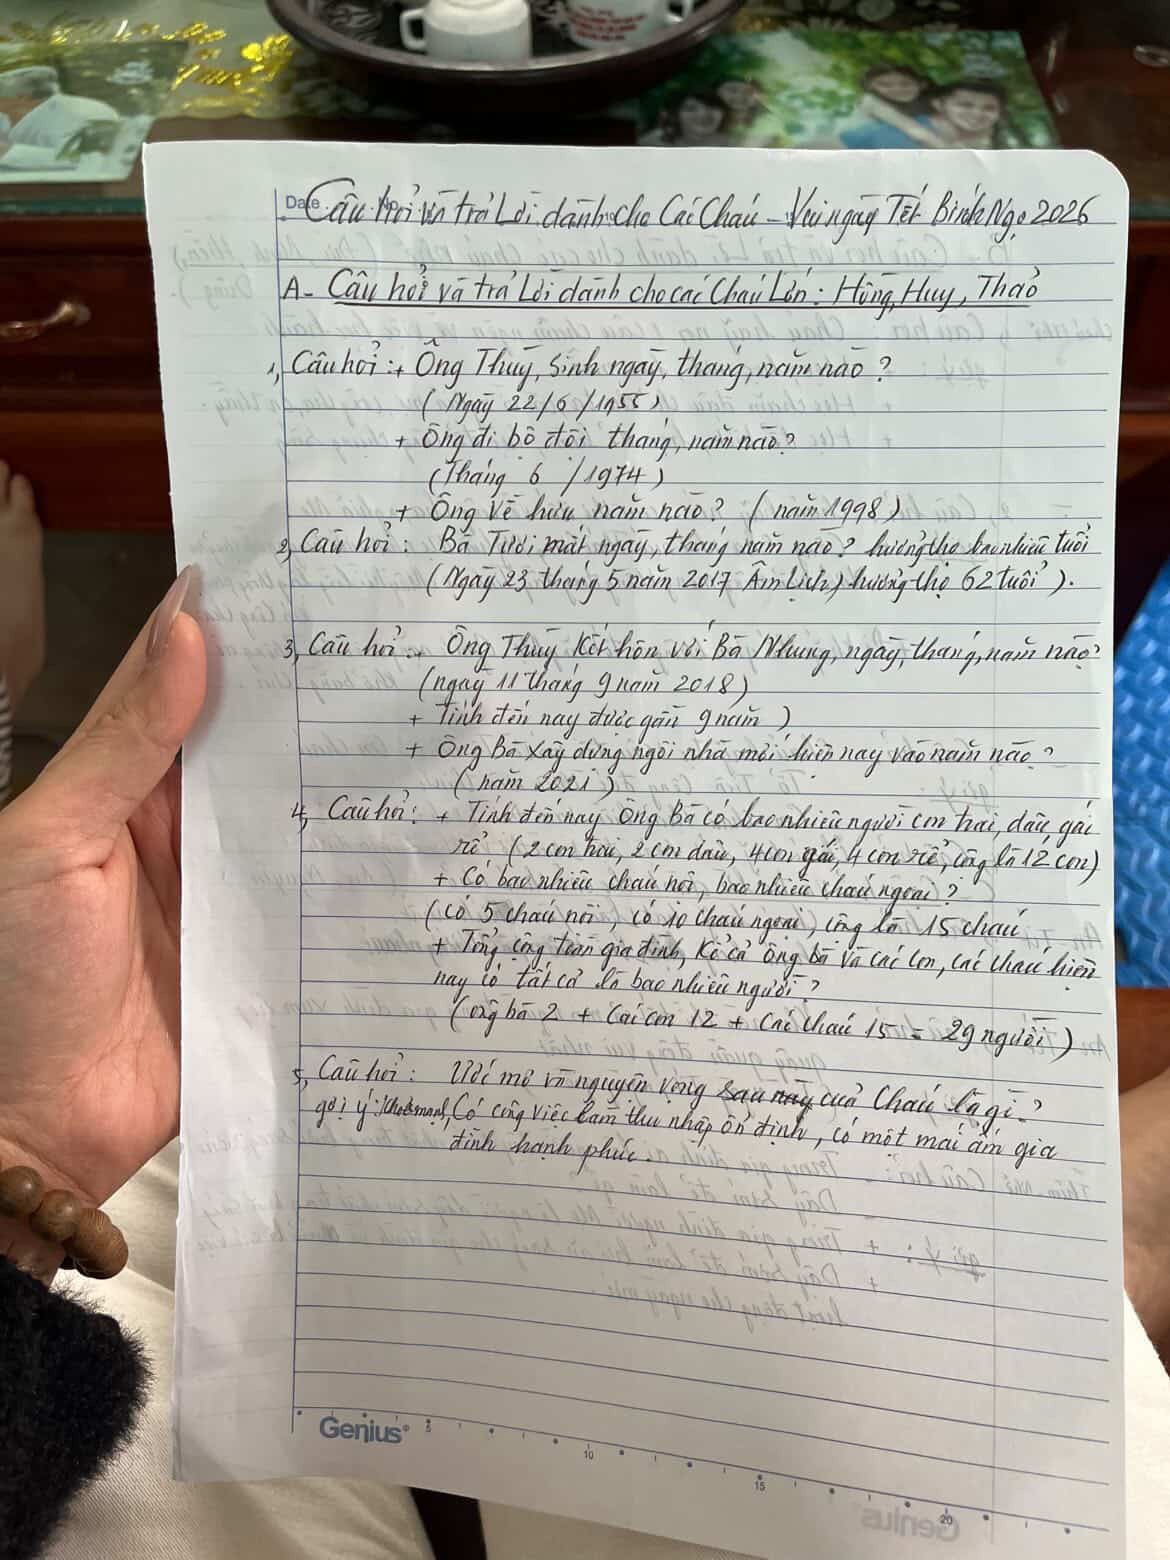 Date No
Câu hỏi và trả Lời dành cho Các Cháu - Vui ngày Tết Bính Ngọ 2026
A- Câu hỏi và trả Lời dành cho các Cháu Lớn: Hùng, Huy, Thảo
1, Câu hỏi: + Ông Thuỳ, sinh ngày, tháng, năm nào?
(Ngày 22/6/1955)
+ Ông đi bộ đội tháng, năm nào?
(Tháng 6/1974)
+ Ông về hưu năm nào? (năm 1998)
2, Câu hỏi: Bà Tươi mất ngày, tháng năm nào? hưởng thọ bao nhiêu tuổi
(Ngày 23 tháng 5 năm 2017 Âm Lịch) hưởng thọ 62 tuổi).
3, Câu hỏi: + Ông Thuỳ kết hôn với Bà Nhung, ngày, tháng, năm nào?
(ngày 11 tháng 9 năm 2018)
+ Tính đến nay được gần 9 năm)
+ Ông Bà xây dựng ngôi nhà mới hiện nay vào năm nào?
(năm 2021)
4, Câu hỏi: + Tính đến nay Ông Bà có bao nhiêu người con trai, dâu, gái
rể (2 con trai, 2 con dâu, 4 con gái, 4 con rể, cộng là 12 con)
+ Có bao nhiêu cháu nội, bao nhiêu cháu ngoại?
(Có 5 cháu nội, có 10 cháu ngoại, cộng là 15 cháu
+ Tổng cộng toàn gia đình, kể cả ông bà và các con, các cháu hiện
nay có tất cả là bao nhiêu người?
(ông bà 2 + Các con 12 + Các cháu 15 = 29 người)
5, Câu hỏi: Ước mơ và nguyện vọng sau này của Cháu là gì?
gợi ý: Khoẻ mạnh, Có công việc làm thu nhập ổn định, có một mái ấm gia
đình hạnh phúc.
Genius
5 10 15 20